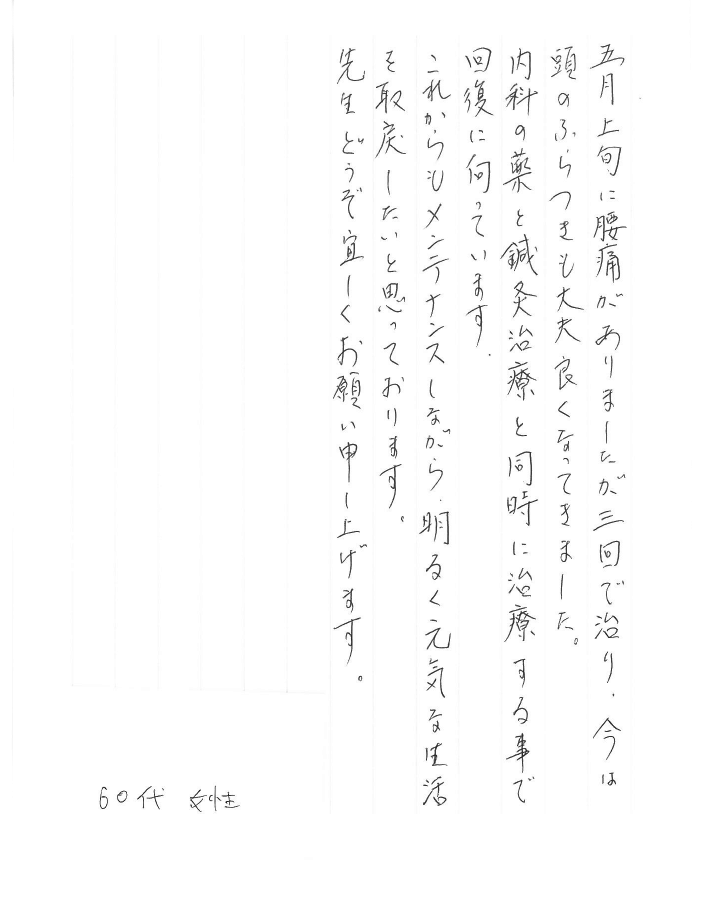 五月上旬に腰痛がありましたが三回で治り、今は
頭のふらつきも大夫良くなってきました。
内科の薬と鍼灸治療と同時に治療する事で
回復に向っています。
これからもメンテナンスしながら、明るく元気な生活
を取戻したいと思っております。
先生どうぞ宜しくお願い申し上げます。
60代 女性